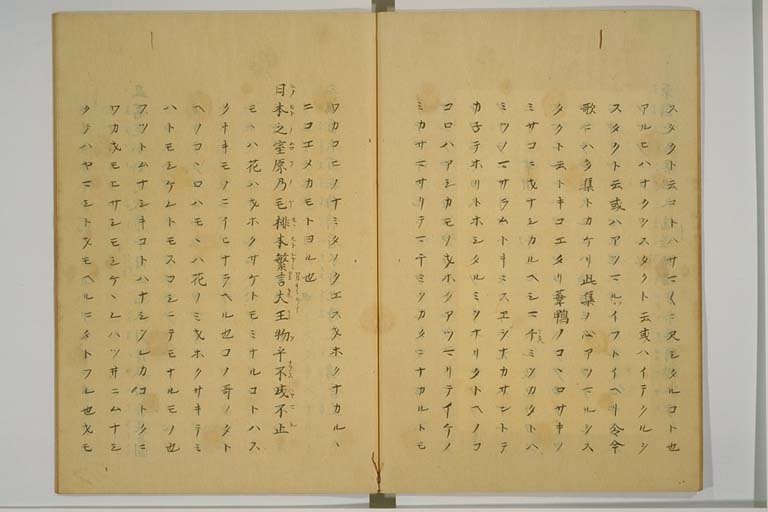 スタクト云コトハサマ〱ニ見ヱタルコト也
アルヒハナクシスタクト云或ハイテクルシ
スタクト云或ハアツマルハイフトイヘリ今
歌ニハ多集トカケリ此集ノ心アツマルシス
タクト云トキコエタリ葦鴨ノコヽロサキソ
ミサコニヲナシカルヘシマチミツカクトハ
ミツノマサラムトキミスヱシナカサントテ
カ子テホリトホシタルミソナリタトヘノコ
コロハアシカモノヲホクアツマリテイケノ
ミカサマサリテマチミソカタニナカルトモ
ワカコヒノナミタソクエスヲホクナカルヽ
ニコエメカモトヨル也
日本之室原乃毛桃本繁言大王物乎不成不止
モヽハ花ハヲホクサケトモミナルコトハス
クナキモノニイヒナラヘル也コノ哥ノタト
ヘノコヽロハモヽハ花ノミヲホクサキテミ
ハトモシケレトモスコシニテモナルモノ也
フツトムナシキコトハナシソレカコトクニ
ワカヲモヒサシモシケヽレハツ井ニムナシ
クテハヤマシトヲモヘルニタトフル也ヲモ